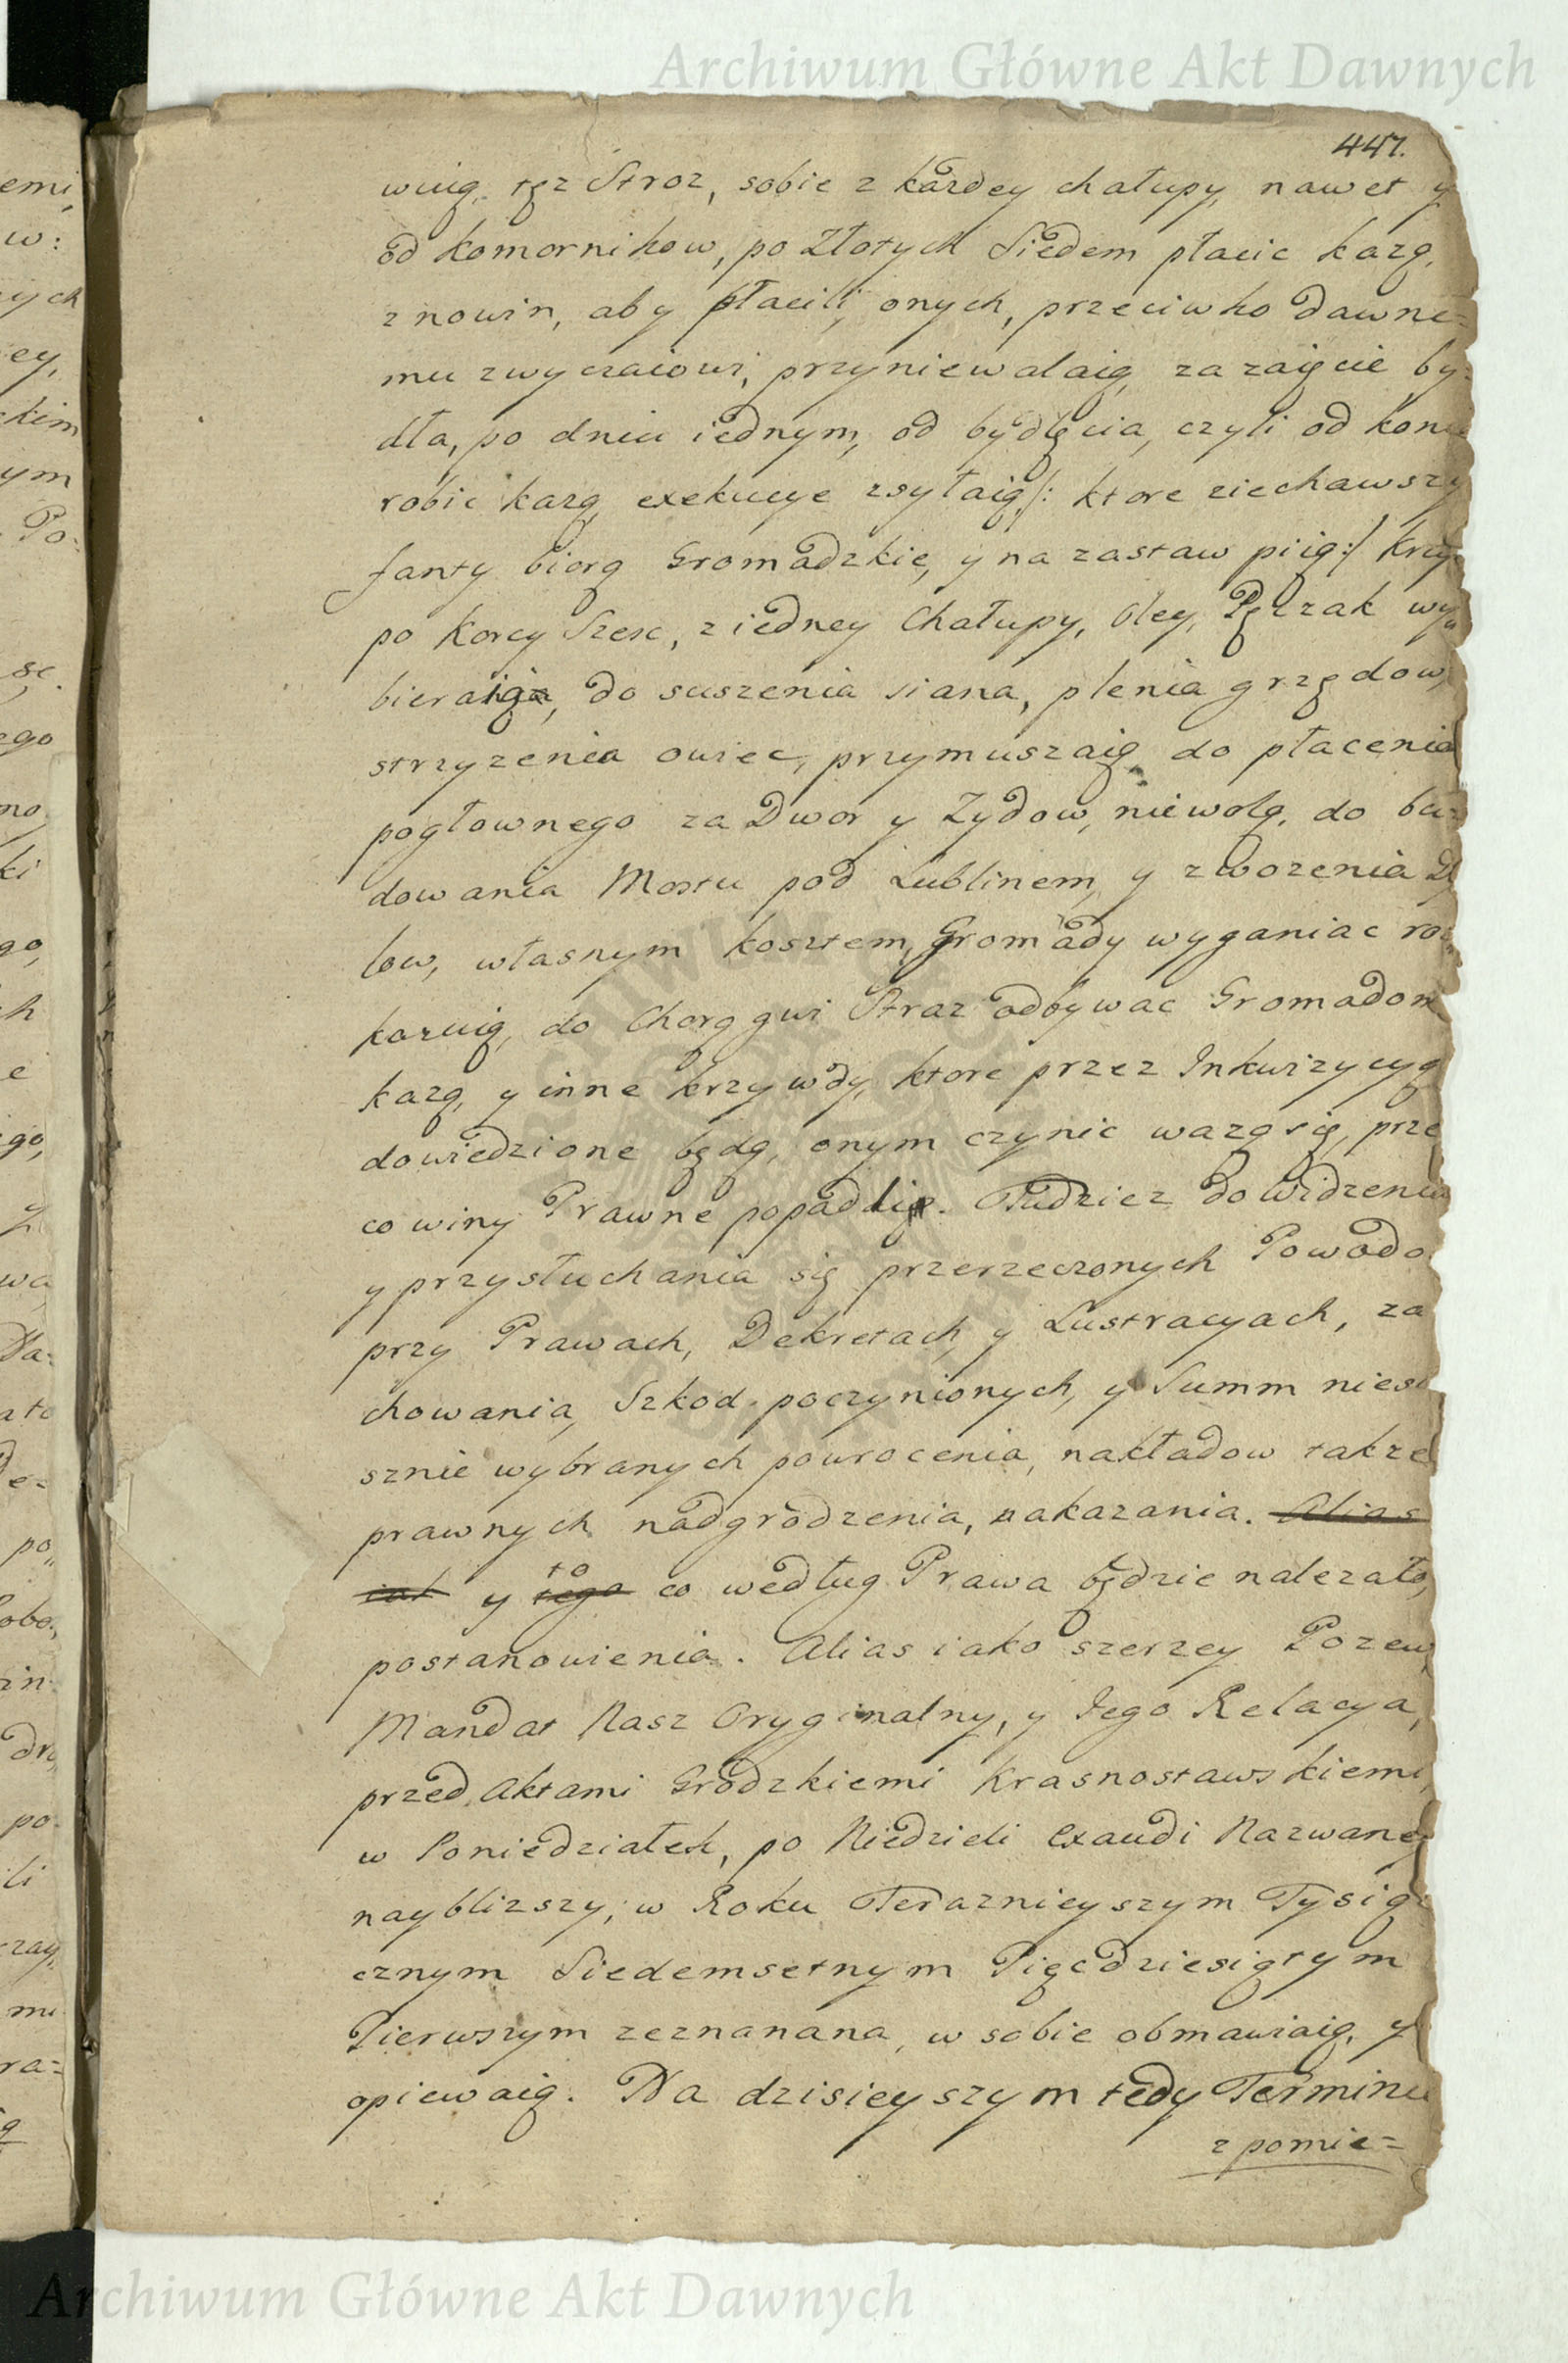 Archiwum Główne Akt Dawnych
447.
wuią, tęz Stroz, sobie z kazdey chałupy, nawet y
od komornikow, po Złotych Siedem płacic kazą,
z nowin, aby płacili, onych, przeciwko dawne=
mu zwyczaiowi, przyniewalaią, za zaięcie by=
dła, po dniu iednym, od bydlęcia, czyli od konia
robic kazą, exekucye zsyłaią /: ktore ziechawszy
fanty biorą Gromadzkie, y na zastaw piią :/
po korcy Szesc, z iedney Chałupy, Oley, Pęczak wy„
bieraią, do suszenia siana, plenia grzędow,
strzyzenia owiec, przymuszaią, do płacenia
pogłownego za Dwor y Zydow, niewolą, do bu=
dowania Mostu pod Lublinem, y zwozenia
low, własnym kosztem, Gromady wyganiac
kazuią, do Chorągwi Straz odbywac Gromadom
kazą, y inne krzywdy, ktore przez Inkwizycyą
dowiedzione będą, onym czynic wazą się, prze
co winy Prawne popadli. Tudziez do widzenia
y przysłuchania się przerzeczonych Powodo
przy Prawach, Dekretach, y Lustracyach, za
chowania, Szkod poczynionych, y Summ niesł
sznie wybranych powrocenia, nakładow takze
prawnych nadgrodzenia, nakazania. Alias
iak y tego to co według Prawa będzie nalezało,
postanowienia. Alias iako szerzey Pozew,
Mandat Nasz Oryginalny, y Jego Relacya,
przed Aktami Grodzkiemi Krasnostawskiemi,
w Poniedziałek, po Niedzieli Exaudi Nazwaney
nayblizszy, w Roku Teraznieyszym Tysią
cznym Siedemsetnym Pięcdziesiątym
Pierwszym zeznanana, w sobie obmawiaią, y
opiewaią. Na dzisieyszym tedy Terminu
z pomie=
Archiwum Główne Akt Dawnych